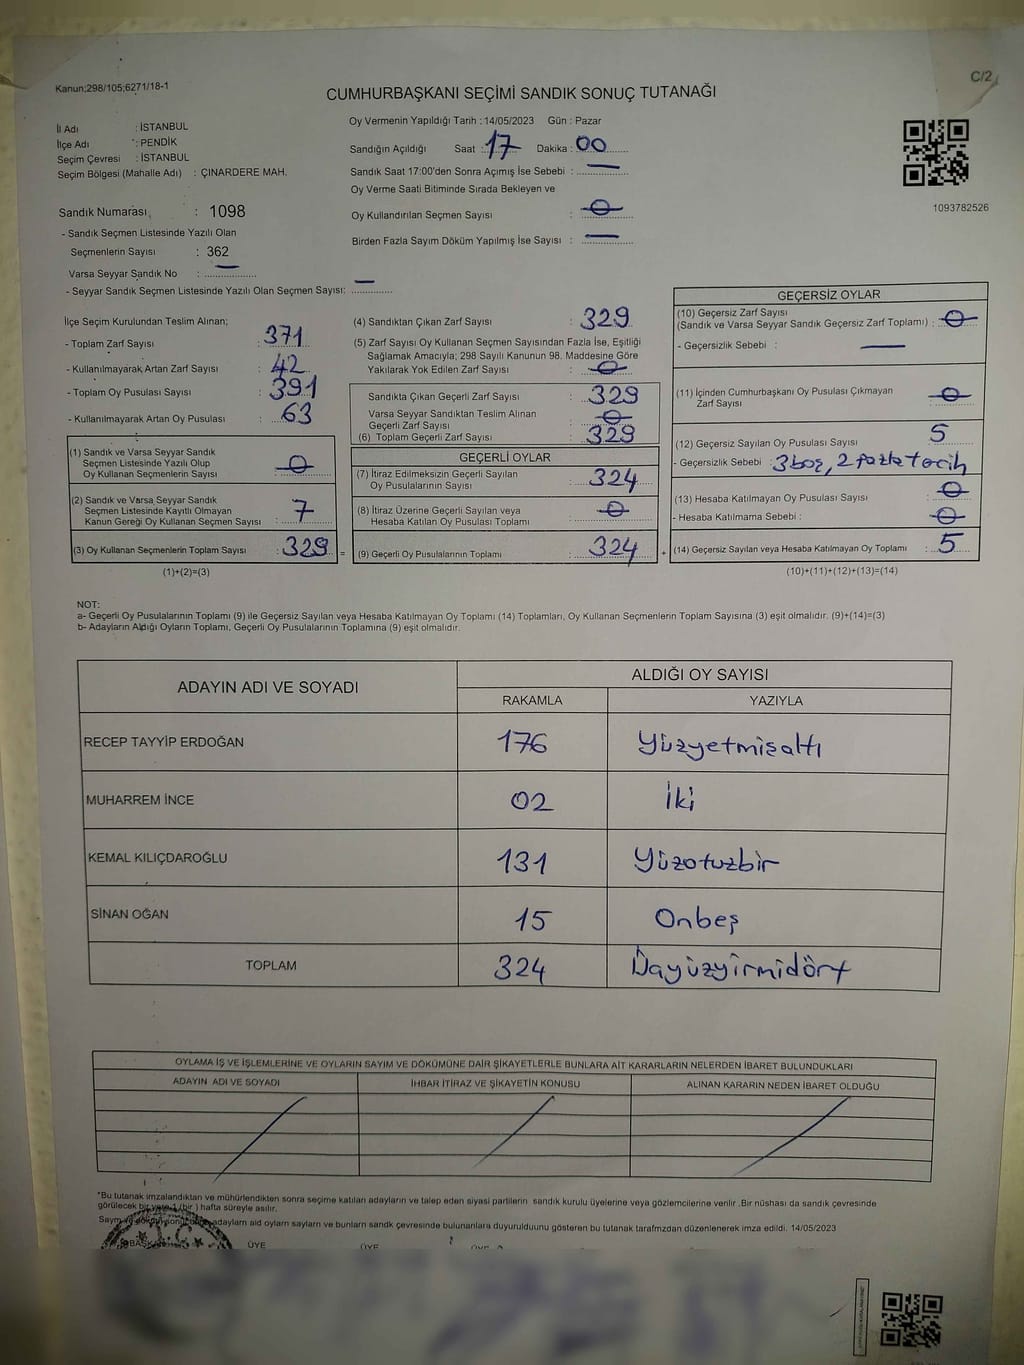 Kanun;298/105;6271/18-1
C/2
CUMHURBAŞKANI SEÇİMİ SANDIK SONUÇ TUTANAĞI
İl Adı : İSTANBUL
İlçe Adı : PENDİK
Seçim Çevresi : İSTANBUL
Seçim Bölgesi (Mahalle Adı) : ÇINARDERE MAH.
Oy Vermenin Yapıldığı Tarih : 14/05/2023 Gün : Pazar
Sandığın Açıldığı Saat : 17 Dakika : 00
Sandık Saat 17:00'den Sonra Açımış İse Sebebi : —
Oy Verme Saati Bitiminde Sırada Bekleyen ve
Oy Kullandırılan Seçmen Sayısı : 0
Birden Fazla Sayım Döküm Yapılmış İse Sayısı : —
1093782526
Sandık Numarası : 1098
- Sandık Seçmen Listesinde Yazılı Olan
Seçmenlerin Sayısı : 362
Varsa Seyyar Sandık No : —
- Seyyar Sandık Seçmen Listesinde Yazılı Olan Seçmen Sayısı: —
İlçe Seçim Kurulundan Teslim Alınan;
- Toplam Zarf Sayısı : 371
- Kullanılmayarak Artan Zarf Sayısı : 42
- Toplam Oy Pusulası Sayısı : 391
- Kullanılmayarak Artan Oy Pusulası : 63
(1) Sandık ve Varsa Seyyar Sandık
Seçmen Listesinde Yazılı Olup
Oy Kullanan Seçmenlerin Sayısı : 0
(2) Sandık ve Varsa Seyyar Sandık
Seçmen Listesinde Kayıtlı Olmayan
Kanun Gereği Oy Kullanan Seçmen Sayısı : 7
(3) Oy Kullanan Seçmenlerin Toplam Sayısı : 329 =
(1)+(2)=(3)
(4) Sandıktan Çıkan Zarf Sayısı : 329
(5) Zarf Sayısı Oy Kullanan Seçmen Sayısından Fazla İse, Eşitliği
Sağlamak Amacıyla; 298 Sayılı Kanunun 98. Maddesine Göre
Yakılarak Yok Edilen Zarf Sayısı : 0
Sandıkta Çıkan Geçerli Zarf Sayısı : 329
Varsa Seyyar Sandıktan Teslim Alınan
Geçerli Zarf Sayısı : 0
(6) Toplam Geçerli Zarf Sayısı : 329
GEÇERLİ OYLAR
(7) İtiraz Edilmeksizin Geçerli Sayılan
Oy Pusulalarının Sayısı : 324
(8) İtiraz Üzerine Geçerli Sayılan veya
Hesaba Katılan Oy Pusulası Toplamı : 0
(9) Geçerli Oy Pusulalarının Toplamı : 324 +
GEÇERSİZ OYLAR
(10) Geçersiz Zarf Sayısı
(Sandık ve Varsa Seyyar Sandık Geçersiz Zarf Toplamı) : 0
- Geçersizlik Sebebi : —
(11) İçinden Cumhurbaşkanı Oy Pusulası Çıkmayan
Zarf Sayısı : 0
(12) Geçersiz Sayılan Oy Pusulası Sayısı : 5
- Geçersizlik Sebebi : 3 boş, 2 fazla tercih
(13) Hesaba Katılmayan Oy Pusulası Sayısı : 0
- Hesaba Katılmama Sebebi : 0
(14) Geçersiz Sayılan veya Hesaba Katılmayan Oy Toplamı : 5
(10)+(11)+(12)+(13)=(14)
NOT:
a- Geçerli Oy Pusulalarının Toplamı (9) ile Geçersiz Sayılan veya Hesaba Katılmayan Oy Toplamı (14) Toplamları, Oy Kullanan Seçmenlerin Toplam Sayısına (3) eşit olmalıdır. (9)+(14)=(3)
b- Adayların Aldığı Oyların Toplamı, Geçerli Oy Pusulalarının Toplamına (9) eşit olmalıdır.
ADAYIN ADI VE SOYADI
ALDIĞI OY SAYISI
RAKAMLA YAZIYLA
RECEP TAYYİP ERDOĞAN 176 Yüzyetmişaltı
MUHARREM İNCE 02 İki
KEMAL KILIÇDAROĞLU 131 Yüzotuzbir
SİNAN OĞAN 15 Onbeş
TOPLAM 324 Üçyüzyirmidört
OYLAMA İŞ VE İŞLEMLERİNE VE OYLARIN SAYIM VE DÖKÜMÜNE DAİR ŞİKAYETLERLE BUNLARA AİT KARARLARIN NELERDEN İBARET BULUNDUKLARI
ADAYIN ADI VE SOYADI İHBAR İTİRAZ VE ŞİKAYETİN KONUSU ALINAN KARARIN NEDEN İBARET OLDUĞU
"Bu tutanak imzalandıktan ve mühürlendikten sonra seçime katılan adayların ve talep eden siyasi partilerin sandık kurulu üyelerine veya gözlemcilerine verilir .Bir nüshası da sandık çevresinde
görülecek bir yere 1 (bir ) hafta süreyle asılır.
adayların ald oyların sayları ve bunların sandk çevresinde bulunanlara duyurulduunu gösteren bu tutanak tarafmzdan düzenlenerek imza edildi. 14/05/2023
BAŞKAN ÜYE ÜYE ÜYE